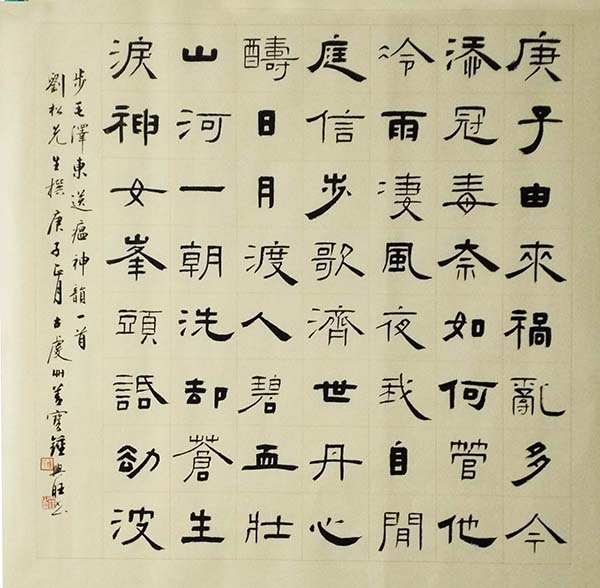 庚子由來禍亂多今
添冠毒奈如何管他
冷雨淒風夜我自閒
庭信步歌濟世丹心
醻日月渡人碧血壯
山河一朝洗却蒼生
淚神女峯頭話劫波
步毛澤東送瘟神韻一首
劉松先生撰庚子正月古虔州鍾旺書